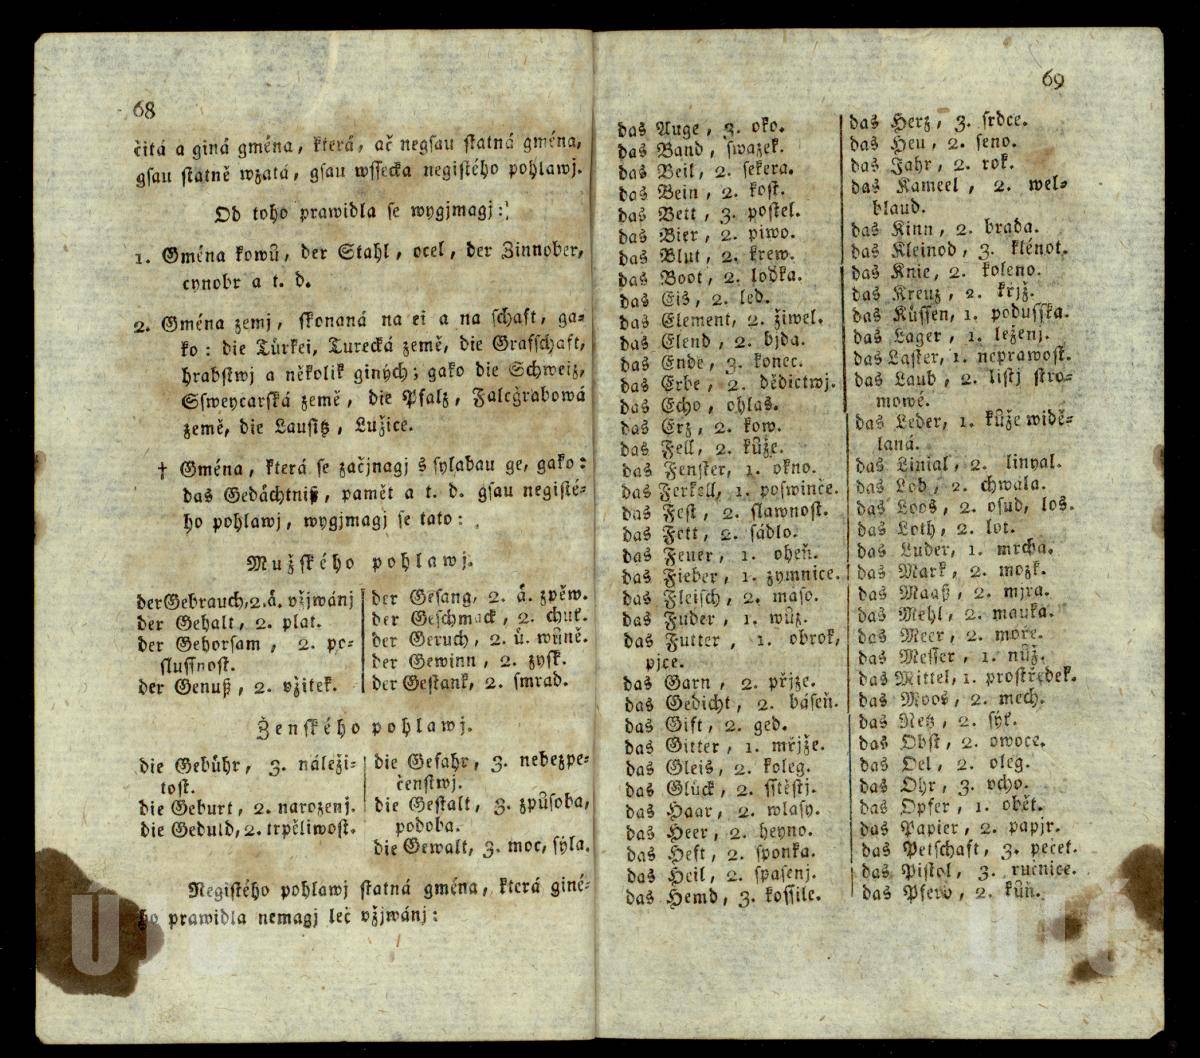 68
čitá a giná gména, která, ač negsau statná gména,
gsau statně wzatá, gsau wssecka negistého pohlawj.
Od toho prawidla se wygjmagj:
1. Gména kowů, der Stahl, ocel, der Zinnober,
cynobr a t. d.
2. Gména zemj, skonaná na ei a na schaft, ga=
ko: die Türkei, Turecká země, die Grafschaft,
hrabstwj a několik giných; gako die Schweiz,
Ssweycarská země, die Pfalz, Falcgrabowá
země, die Lausitz, Lužice.
† Gména, která se začjnagj s sylabau ge, gako:
das Gedächtniß, pamět a t. d. gsau negisté=
ho pohlawj, wygjmagj se tato:
Mužského pohlawj.
der Gebrauch, 2. ä. vžjwánj
der Gehalt, 2. plat.
der Gehorsam, 2. po=
slussnost.
der Genuß, 2. vžitek.
der Gesang, 2. ä. zpěw.
der Geschmack, 2. chuť.
der Geruch, 2. ü. wůně.
der Gewinn, 2. zysk.
der Gestank, 2. smrad.
Ženského pohlawj.
die Gebühr, 3. náleži=
tost.
die Geburt, 2. narozenj.
die Geduld, 2. trpěliwost.
die Gefahr, 3. nebezpe=
čenstwj.
die Gestalt, 3. způsoba,
podoba.
die Gewalt, 3. moc, sýla.
Negistého pohlawj statná gména, která giné=
ho prawidla nemagj leč vžjwánj:
69
das Auge, 3. oko.
das Band, swazek.
das Beil, 2. sekera.
das Bein, 2. kost.
das Bett, 3. postel.
das Bier, 2. piwo.
das Blut, 2. krew.
das Boot, 2. loďka.
das Eis, 2. led.
das Element, 2. žiwel.
das Elend, 2. bjda.
das Ende, 3. konec.
das Erbe, 2. dědictwj.
das Echo, ohlas.
das Erz, 2. kow.
das Fell, 2. kůže.
das Fenster, 1. okno.
das Ferkell, 1. poswinče.
das Fest, 2. slawnost.
das Fett, 2. sádlo.
das Feuer, 1. oheň.
das Fieber, 1. zymnice.
das Fleisch, 2. maso.
das Fuder, 1. wůz.
das Futter, 1. obrok,
pjce.
das Garn, 2. přjze.
das Gedicht, 2. báseň.
das Gift, 2. ged.
das Gitter, 1. mřjže.
das Gleis, 2. koleg.
das Glück, 2. sstěstj.
das Haar, 2. wlasy.
das Heer, 2. heyno.
das Heft, 2. sponka.
das Heil, 2. spasenj.
das Hemd, 3. kossile.
das Herz, 3. srdce.
das Heu, 2. seno.
das Jahr, 2. rok.
das Kameel, 2. wel=
blaud.
das Kinn, 2. brada.
das Kleinod, 3. klénot.
das Knie, 2. koleno.
das Kreuz, 2. křjž.
das Küssen, 1. podusska.
das Lager, 1. leženj.
das Laster, 1. neprawost.
das Laub, 2. listj stro=
mowé.
das Leder, 1. kůže widě=
laná.
das Linial, 2. linyal.
das Lob, 2. chwala.
das Loos, 2. osud, los.
das Loth, 2. lot.
das Luder, 1. mrcha.
das Mark, 2. mozk.
das Maaß, 2. mjra.
das Mehl, 2. mauka.
das Meer, 2. moře.
das Messer, 1. nůž.
das Mittel, 1. prostředek.
das Moos, 2. mech.
das Netz, 2. sýť.
das Obst, 2. owoce.
das Oel, 2. oleg.
das Ohr, 3. vcho.
das Opfer, 1. obět.
das Papier, 2. papjr.
das Petschaft, 3. pečet.
das Pistol, 3. ručnice.
das Pferd, 2. kůň.